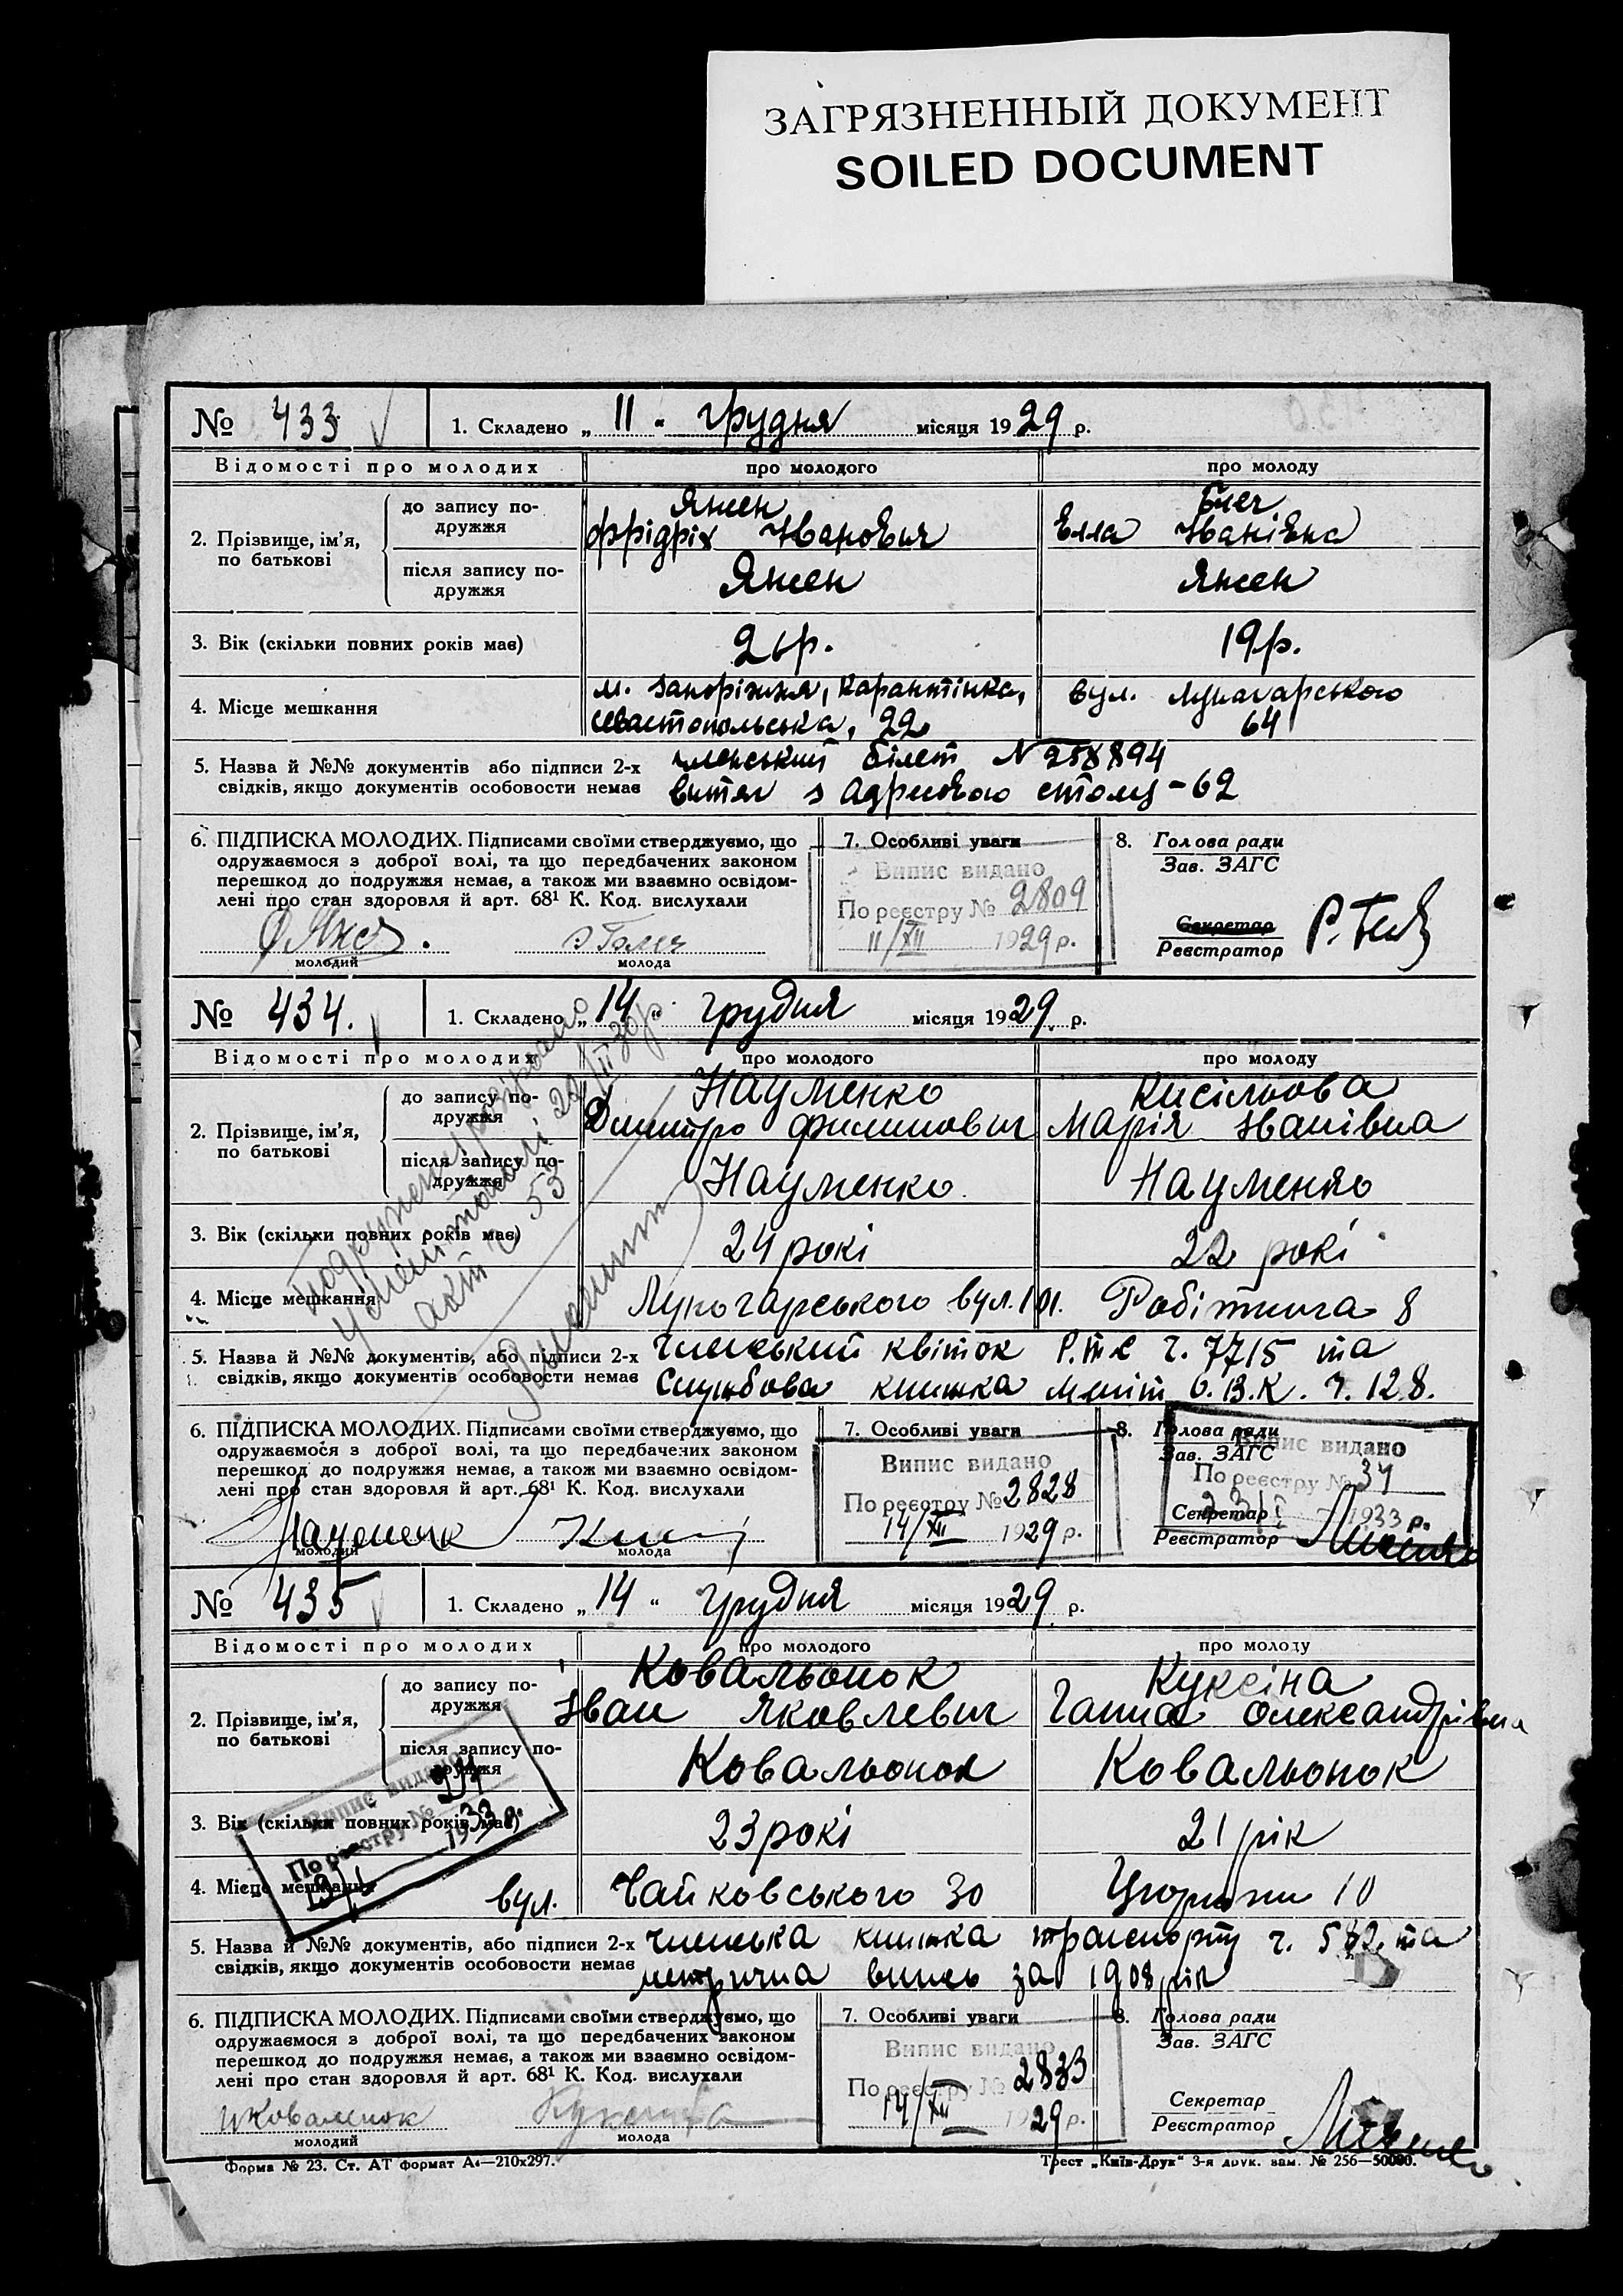 ЗАГРЯЗНЕННЫЙ ДОКУМЕНТ
SOILED DOCUMENT
№ 433
1. Складено „ 11 “ грудня місяця 1929 р.
Відомості про молодих
про молодого
про молоду
2. Прізвище, ім'я, по батькові
до запису подружжя
Янсен
Фрідріх Іванович
Елла Іванівна
після запису подружжя
Янсен
Янсен
3. Вік (скільки повних років має)
26 р.
19 р.
4. Місце мешкання
м. Запоріжжя, Карантінка,
Севастопольська, 22
вул. Луначарського
64
5. Назва й №№ документів або підписи 2-х
свідків, якщо документів особовости немає
членський білет N 258894
витяг з адресового столу - 62
6. ПІДПИСКА МОЛОДИХ. Підписами своїми стверджуємо, що
одружаємося з доброї волі, та що передбачених законом
перешкод до подружжя немає, а також ми взаємно освідом-
лені про стан здоровля й арт. 68¹ К. Код. вислухали
молодий
молода
7. Особливі уваги
Випис видано
По реєстру № 2809
11/XII 1929 р.
8. Голова ради
Зав. ЗАГС
Секретар
Реєстратор
№ 434.
1. Складено „ 14 “ грудня місяця 1929 р.
Відомості про молодих
про молодого
про молоду
2. Прізвище, ім'я, по батькові
до запису подружжя
Науменко
Дмитро Филипович
Кисільова
Марія Іванівна
після запису подружжя
Науменко
Науменко
3. Вік (скільки повних років має)
24 рокі
22 рокі
4. Місце мешкання
Луночарського вул. 101.
Робітнича 8
5. Назва й №№ документів, або підписи 2-х
свідків, якщо документів особовости немає
Членський квіток Р.т.с ч. 7715 та
Службова книжка ч. 128.
акт ч 53
6. ПІДПИСКА МОЛОДИХ. Підписами своїми стверджуємо, що
одружаємося з доброї волі, та що передбачених законом
перешкод до подружжя немає, а також ми взаємно освідом-
лені про стан здоровля й арт. 68¹ К. Код. вислухали
молодий
молода
7. Особливі уваги
Випис видано
По реєстру № 2828
14/XII 1929 р.
8. Голова ради
Зав. ЗАГС
Випис видано
По реєстру № 34
1933 р.
Секретар
Реєстратор
№ 435
1. Складено „ 14 “ грудня місяця 1929 р.
Відомості про молодих
про молодого
про молоду
2. Прізвище, ім'я, по батькові
до запису подружжя
Ковальонок
Іван Яковлевич
Куксіна
Ганна Олександрівна
після запису подружжя
Ковальонок
Ковальонок
Випис видано
По реєстру №
1933 р.
3. Вік (скільки повних років має)
23 рокі
21 рік
4. Місце мешкання
вул. Чайковського 30
10
5. Назва й №№ документів, або підписи 2-х
свідків, якщо документів особовости немає
членська книжка транспорту ч. 582 та
метрична випись за 1908 рік
6. ПІДПИСКА МОЛОДИХ. Підписами своїми стверджуємо, що
одружаємося з доброї волі, та що передбачених законом
перешкод до подружжя немає, а також ми взаємно освідом-
лені про стан здоровля й арт. 68¹ К. Код. вислухали
ИКоваленок
молодий
молода
7. Особливі уваги
Випис видано
По реєстру № 2833
14/XII 1929 р.
8. Голова ради
Зав. ЗАГС
Секретар
Реєстратор
Форма № 23. Ст. АТ формат А₄—210x297.
Трест „Київ-Друк“ 3-я друк. зам. № 256—50000.